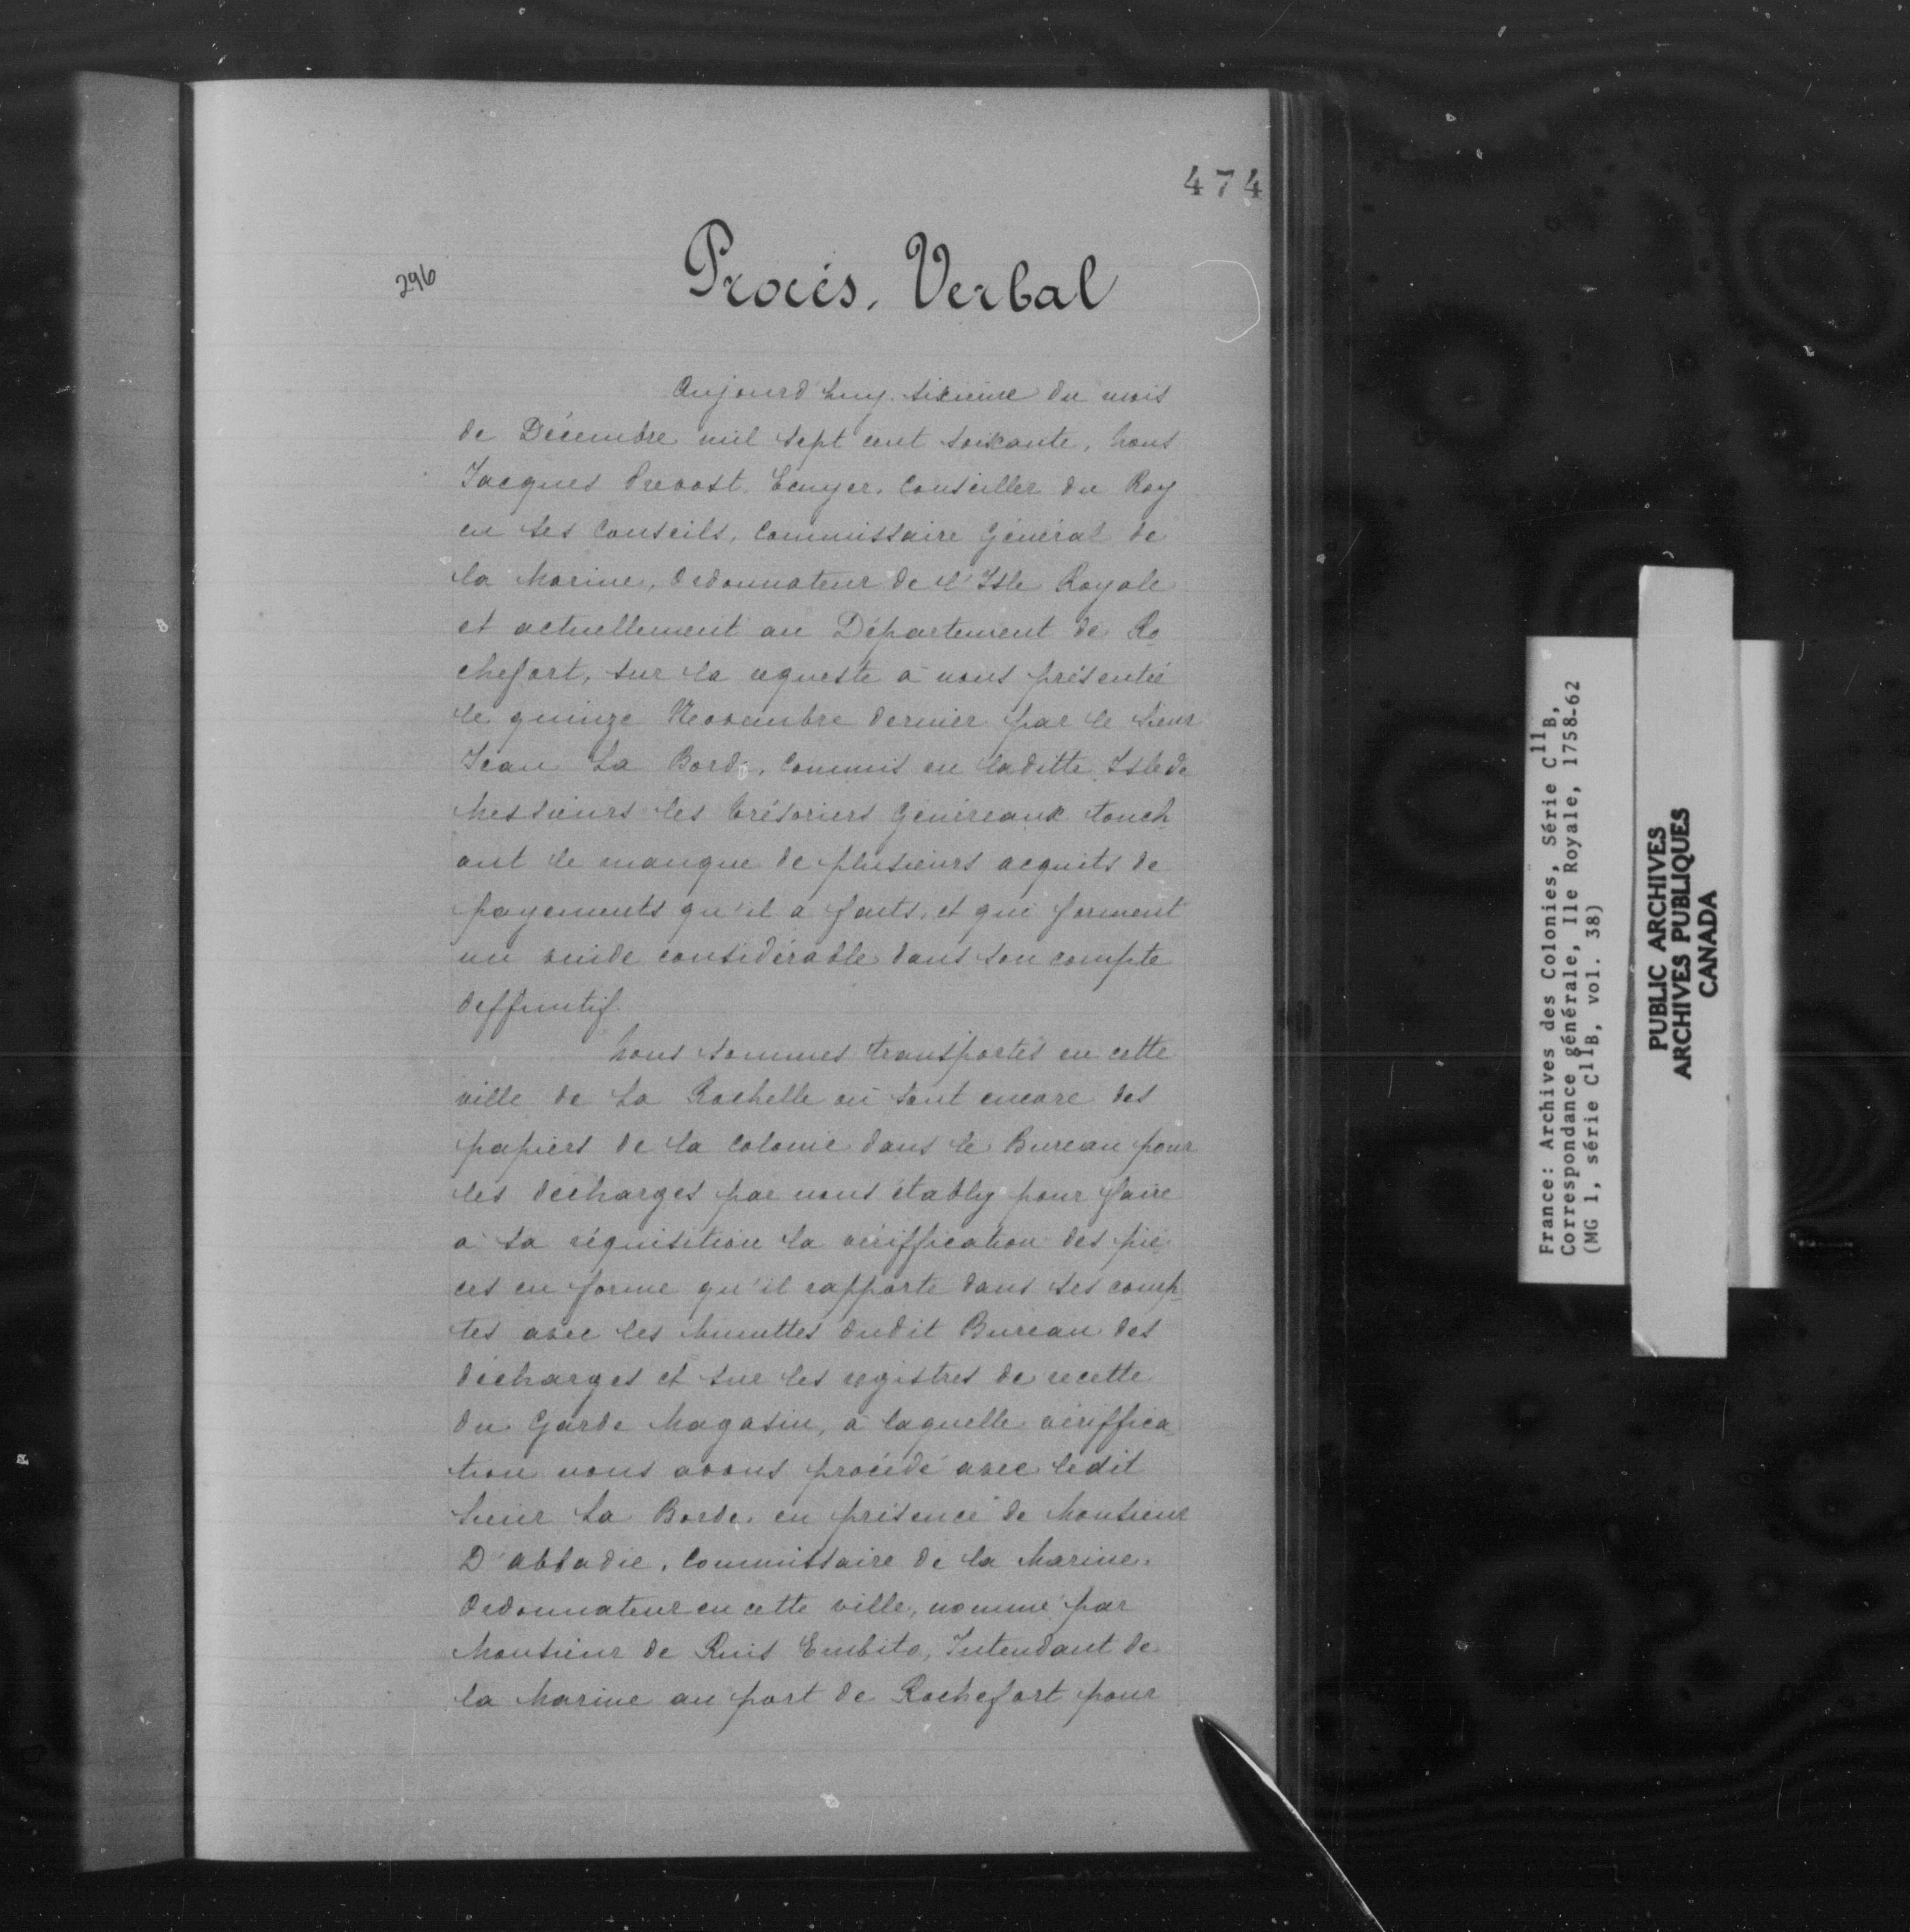 474
296
Procés. Verbal
Aujourd'huy sixieme du mois
de Décembre mil sept cent soixante, Nous
Jacques Prevost, Ecuyer, Conseiller du Roy
en ses Conseils, Commissaire Général de
la Marine, Ordonnateur de l'Isle Royale
et actuellement au Département de Ro
chefort, sur la requeste à nous présentée
le quinze Novembre dernier par le Sieur
Jean La Borde, Commis en laditte Isle de
Messieurs les Trésoriers Généreaux touch
ant le manque de plusieurs acquits de
payements qu'il a faits, et qui forment
un vuide considérable dans son compte
deffinitif.
Nous sommes transportés en cette
ville de La Rochelle où sont encore des
papiers de la Colonie dans le Bureau pour
les décharges par nous étably pour faire
à sa réquisition la vériffication des piè
ces en forme qu'il rapporte dans ses comp-
tes avec les Minuttes dudit Bureau des
décharges et sur les registres de recette
du Garde Magasin, à laquelle vériffica
tion nous avons procédé avec ledit
Sieur La Borde, en présence de Monsieur
D'abbadie, Commissaire de la Marine,
Ordonnateur en cette ville, nommé par
Monsieur de Ruis Embito, Intendant de
la Marine au port de Rochefort pour
France: Archives des Colonies, Série C11B,
Correspondance générale, Ile Royale, 1758-62
(MG 1, série C11B, vol. 38)
PUBLIC ARCHIVES
ARCHIVES PUBLIQUES
CANADA